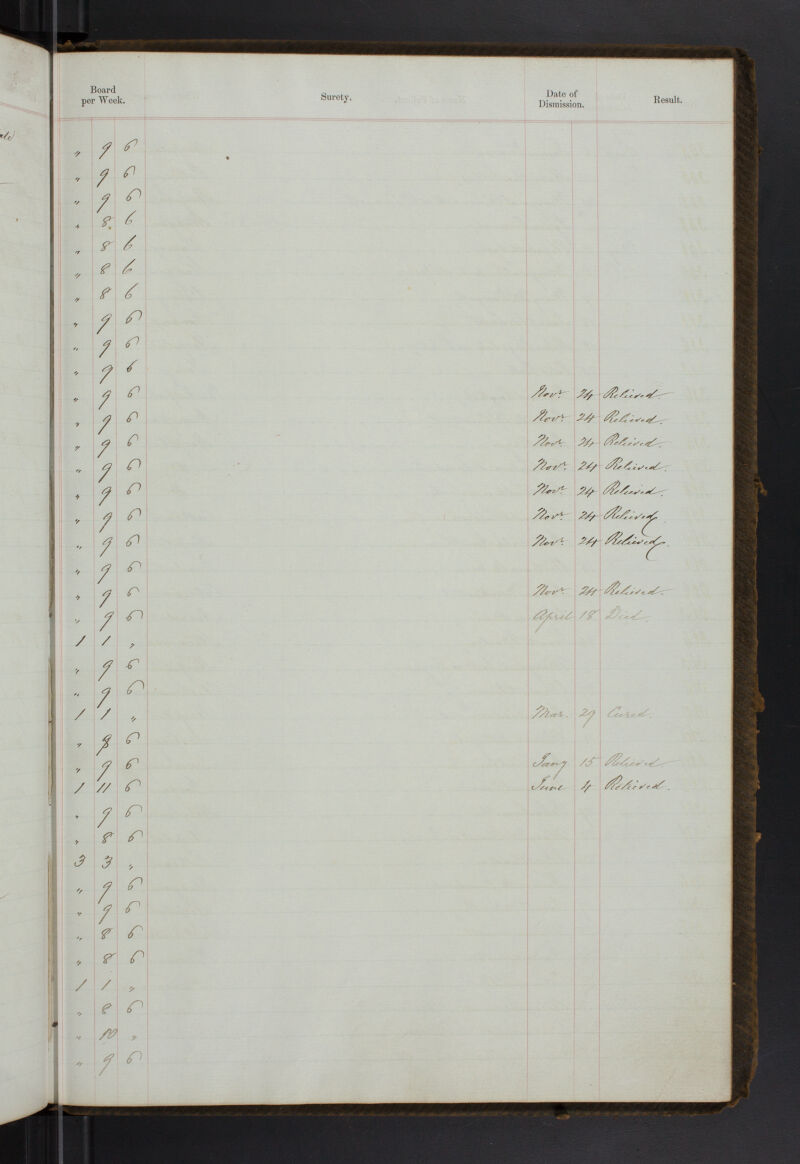 Board per Week. Surety. Date of Dismission. Result.
" 9 6
" 9 6
" 9 6
" 8 6
" 8 6
" 8 6
" 8 6
" 9 6
" 9 6
" 9 6
" 9 6 Novr. 24 Relieved.
" 9 6 Novr. 24 Relieved.
" 9 6 Novr. 24 Relieved.
" 9 6 Novr. 24 Relieved.
" 9 6 Novr. 24 Relieved.
" 9 6 Novr. 24 Relieved
" 9 6 Novr. 24 Relieved.
" 9 6
" 9 6 Novr. 24 Relieved.
" 9 6 April 18 Died.
1 1 "
" 9 6
" 9 6
1 1 " Mar. 29 Cured.
" 8 6
" 9 6 Jany 15 Relieved
1 11 6 June 4 Relieved.
" 9 6
" 8 6
3 3 "
" 9 6
" 9 6
" 8 6
" 8 6
1 1 "
" 8 6
" 10 "
" 9 6